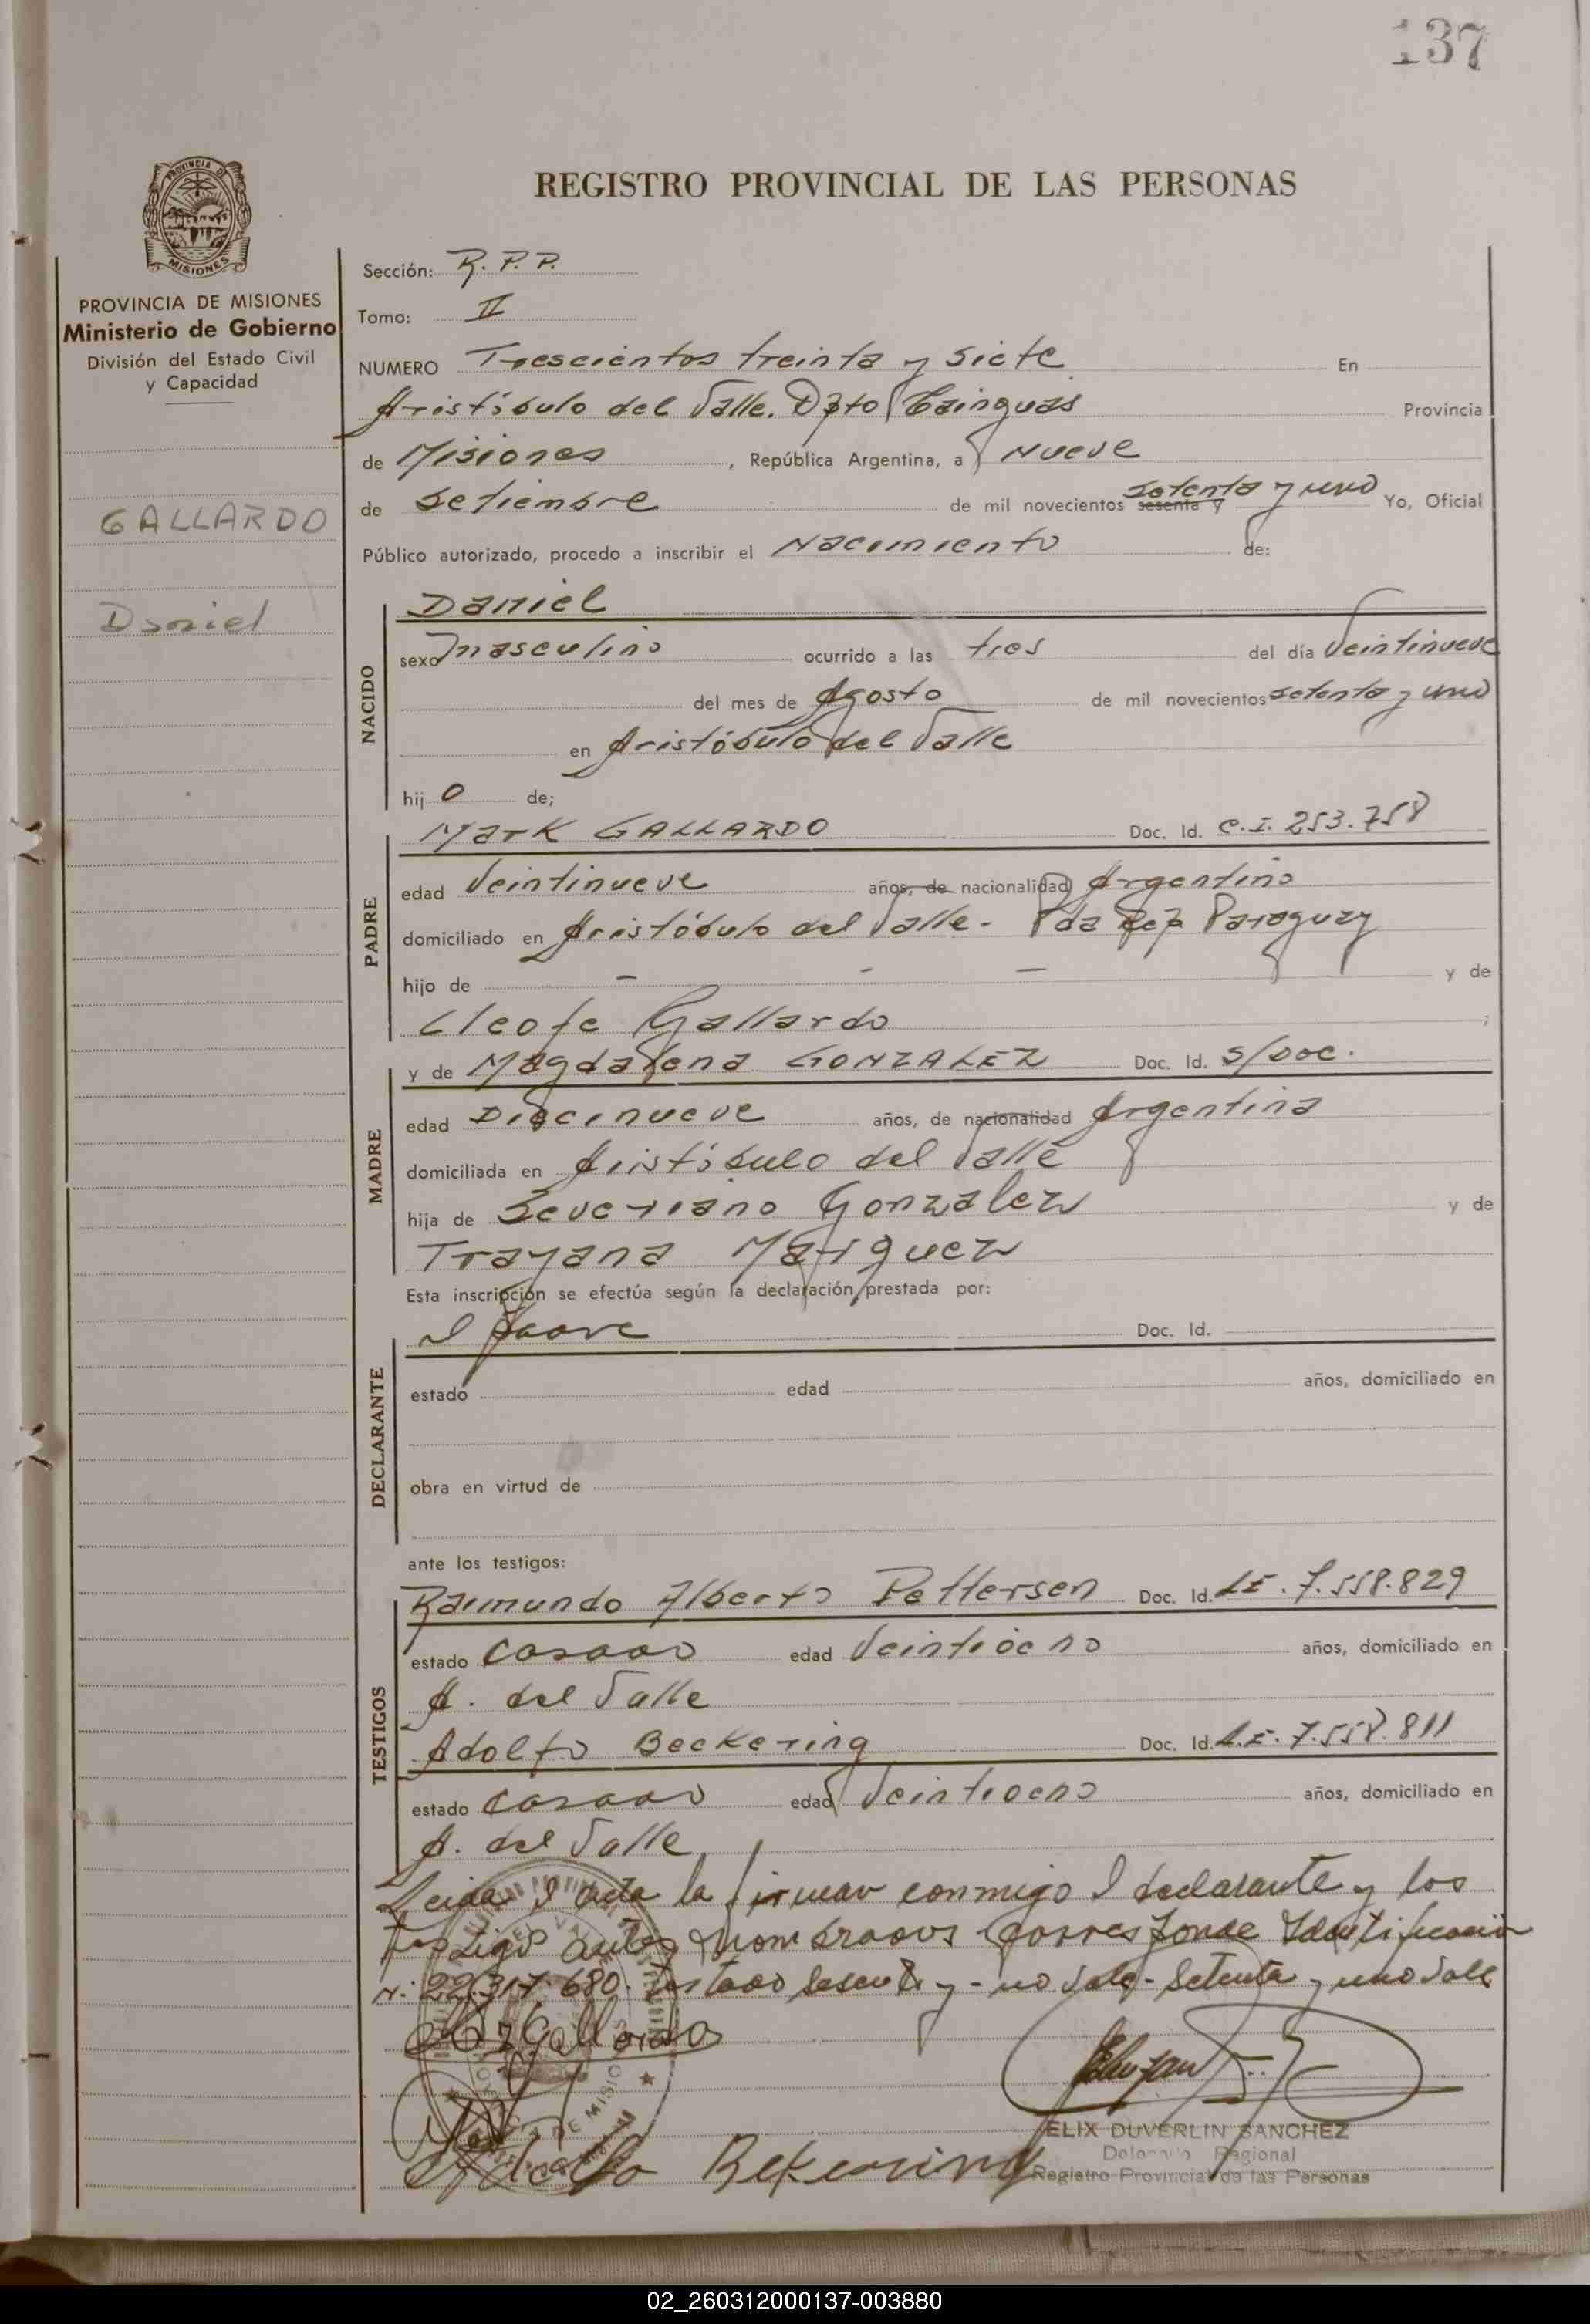 137
PROVINCIA DE
MISIONES
PROVINCIA DE MISIONES
Ministerio de Gobierno
División del Estado Civil
y Capacidad
GALLARDO
Daniel
REGISTRO PROVINCIAL DE LAS PERSONAS
Sección: R. P. P.
Tomo: II
NUMERO Trescientos treinta y siete En
Aristóbulo del Valle. Dpto Cainguas Provincia
de Misiones, República Argentina, a Nueve
de Setiembre de mil novecientos sesenta y setenta y uno Yo, Oficial
Público autorizado, procedo a inscribir el Nacimiento de:
NACIDO
Daniel
sexo masculino ocurrido a las tres del día Veintinueve
del mes de Agosto de mil novecientos setenta y uno
en Aristóbulo del Valle
hij o de;
PADRE
Mark GALLARDO Doc. Id. C.I. 253.758
edad Veintinueve años, de nacionalidad Argentino
domiciliado en Aristóbulo del Valle - Pda Rep Paraguay
hijo de - - - y de
Cleofe Gallardo ;
y de Magdalena GONZALEZ Doc. Id. S/Doc.
MADRE
edad Diecinueve años, de nacionalidad Argentina
domiciliada en Aristóbulo del Valle
hija de Severiano Gonzalez y de
Trayana Marquez
Esta inscripción se efectúa según la declaración prestada por:
DECLARANTE
el Padre Doc. Id.
estado edad años, domiciliado en
obra en virtud de
ante los testigos:
TESTIGOS
Raimundo Alberto Pettersen Doc. Id. L.E. 7.558.829
estado casado edad Veintiocho años, domiciliado en
A. del Valle
Adolfo Beckering Doc. Id. L.E. 7.558.811
estado casado edad Veintiocho años, domiciliado en
A. del Valle
Leida el acta la firman conmigo el declarante y los
testigos antes nombrados Corresponde Identificación
N: 22.317.680. Testado sesenta y - no vale - Setenta y uno Vale
Gallardo
ELIX DUVERLIN SANCHEZ
Delegado Regional
Registro Provincial de las Personas
Adolfo Bekering
02_260312000137-003880